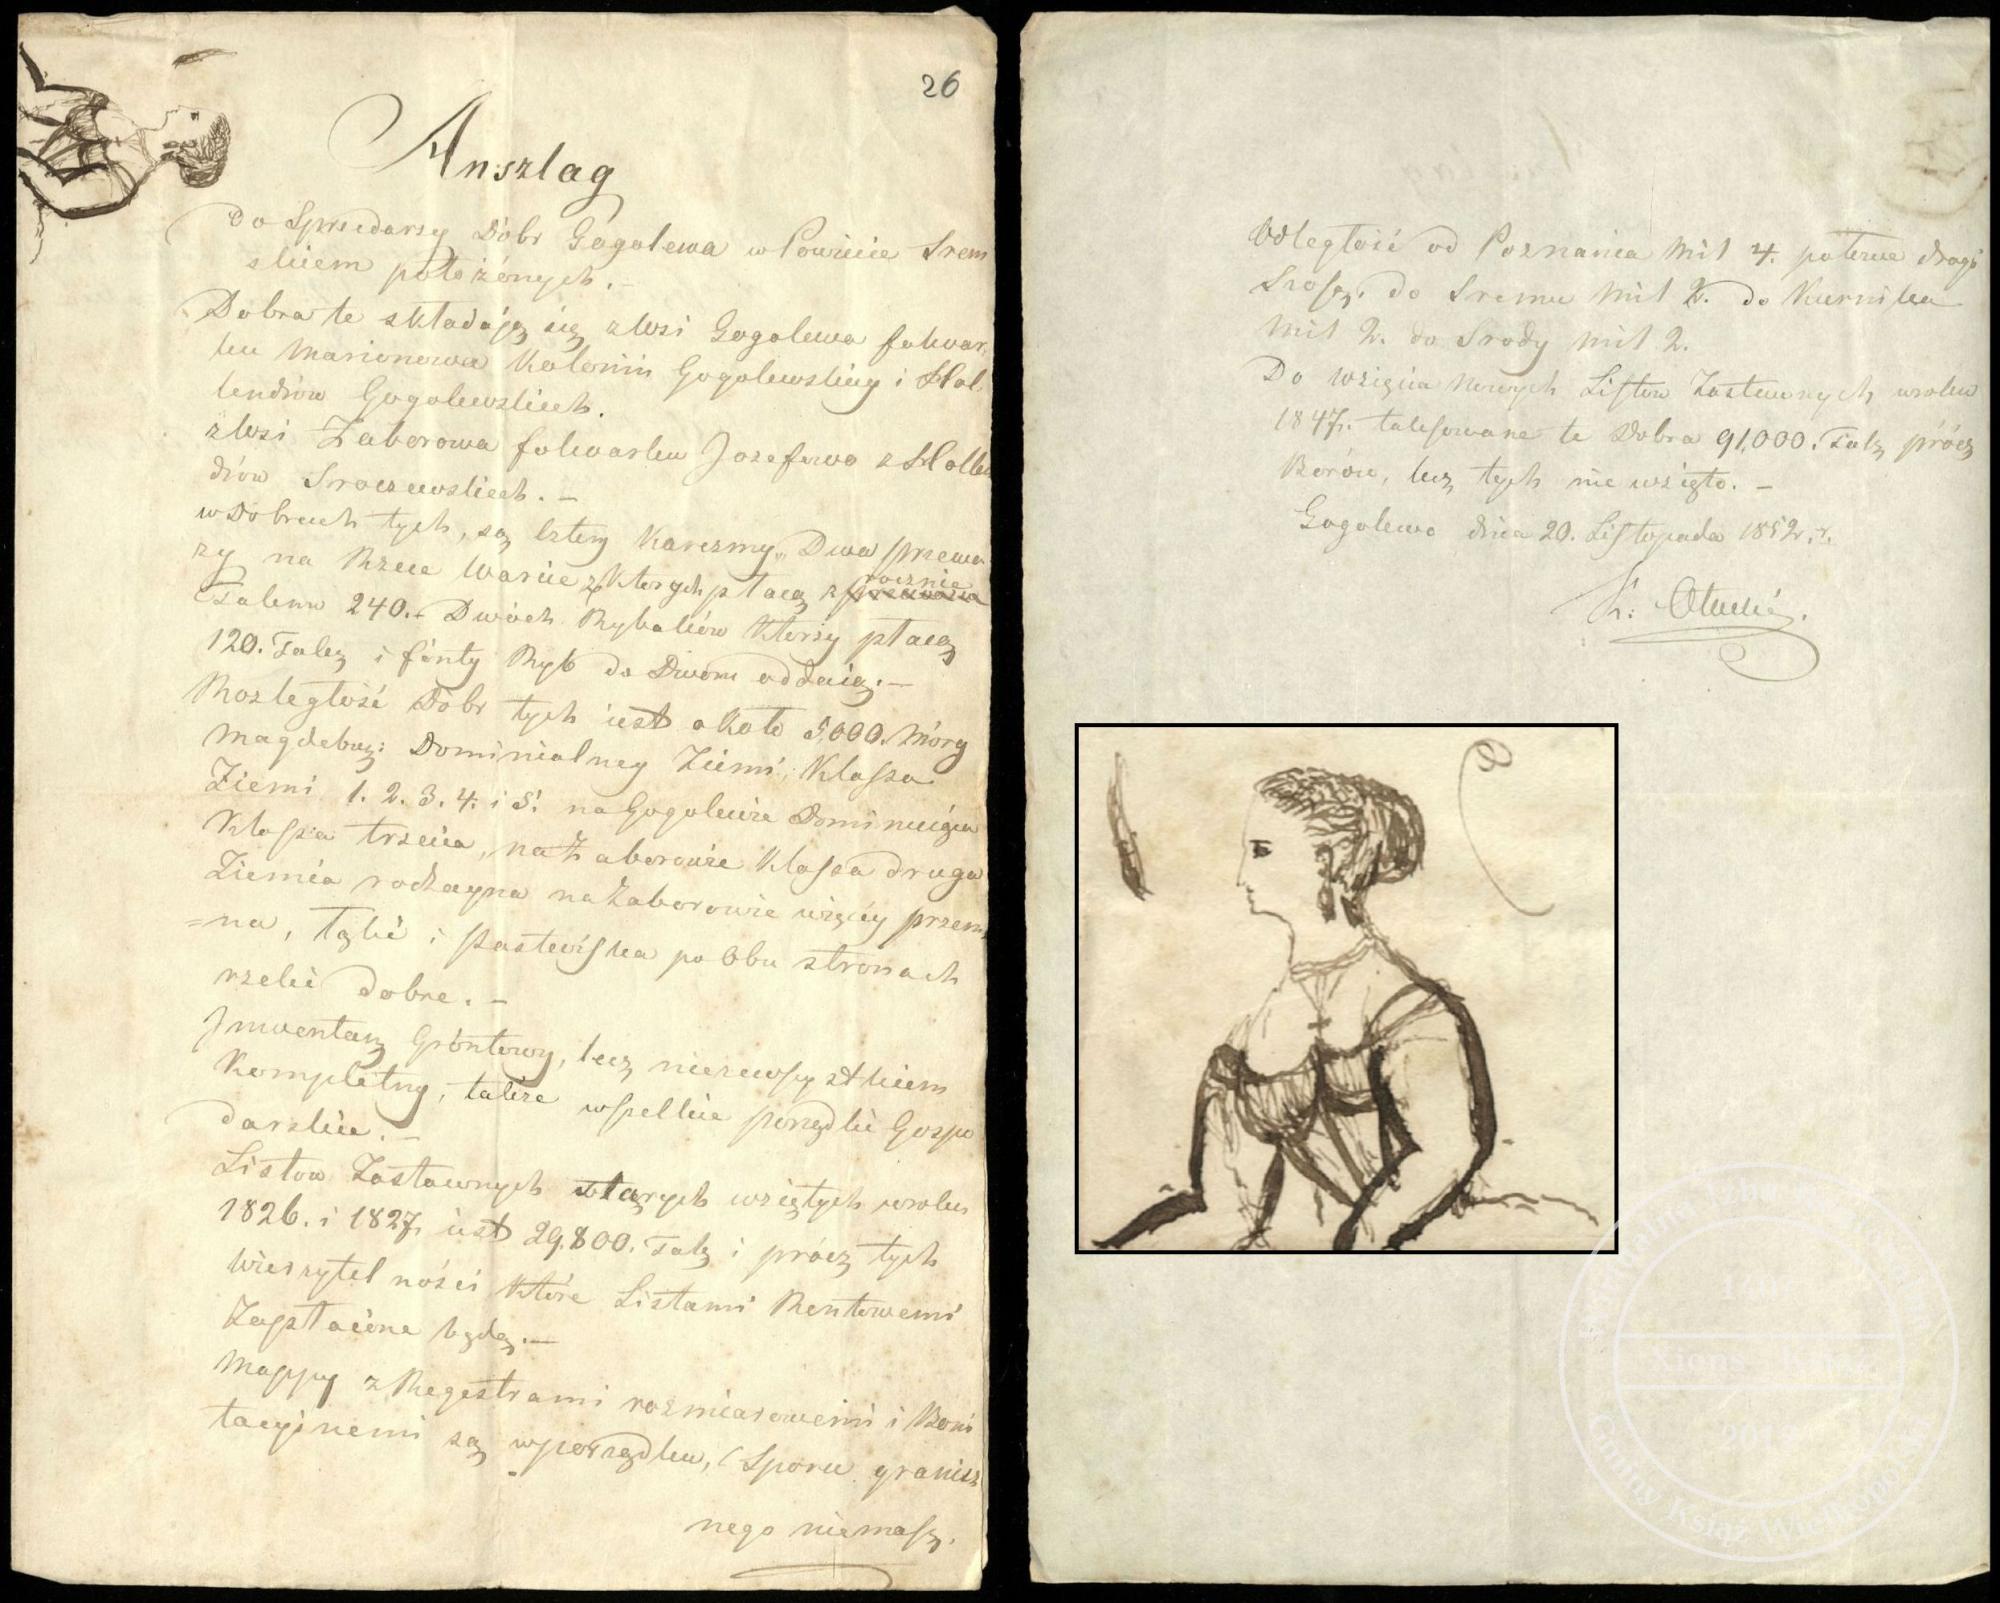 26
Anszlag
do Sprzedarzy Dóbr Gogolewa w Powiecie Srem
skiem położonych. –
Dobra te składają się z Wsi Gogolewa folwar
ku Marianowa Kolonii Gogolewskiey i Hol
lendrów Gogolewskich.
z Wsi Zaborowa folwarku Jozefowo z Holle
drów Sroczewskich. –
w Dobrach tych, są cztery Karczmy, Dwa przewo
zy na Rzece Warcie z ktorych płacą rocznie
Talarow 240. – Dwóch Rybaków ktorzy płacą
120. Tal. i funty Ryb do Dworu oddaią. –
Rozległość Dobr tych iest około 5.000. Mórg
Magdebu: Dominialney Ziemi, Klassa
Ziemi 1. 2. 3. 4. i 5. na Gogolewie
Klassa trzecia, na Zaborowie Klassa druga
Ziemia rodzayna na Zaborowie więcy przen
=na, Łąki i Pastwiska po obu stronach
rzeki dobre. –
Inwentarz Gróntowy, lecz niezewszystkiem
Kompletny, takze wszelkie porządki Gospo
darskie. –
Listow Zastawnych starych wziętych w roku
1826. i 1827. iest 29.800. Tal. i prócz tych
wierzytelności które Listami Rentowemi
Zapłacone będą. –
Mappy z Regestrami rozmiarowemi i Boni
tacyjnemi są w porządku, Sporu granicz
nego niemasz.
Odległość od Poznania Mil 4. połowa drogi
Szosą. do Sremu Mil 2. do Kurnika
Mil 2. do Srody Mil 2.
Do wzięcia Nowych Listow Zastawnych w roku
1847. taxowane te Dobra 91,000. Tal. prócz
Borów, lecz tych nie wzięto. –
Gogolewo dnia 20. Listopada 1852. r.
Książ Wielkopolski